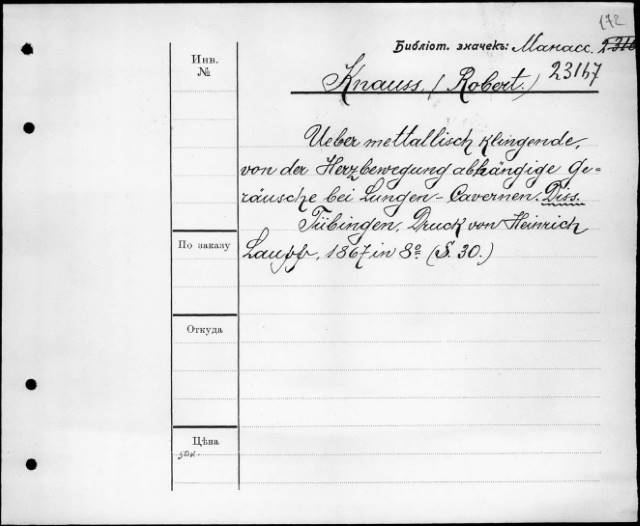 172
Библіот. значекъ: Манасс. 2316
Инв.
№
23167
Knauss, (Robert.)
Ueber mettallisch klingende,
von der Herzbewegung abhängige Ge=
räusche bei Lungen-Cavernen. Diss.
Tübingen, Druck von Heinrich
Laupp, 1867 in 8º (S. 30.)
По заказу
Откуда
Цѣна